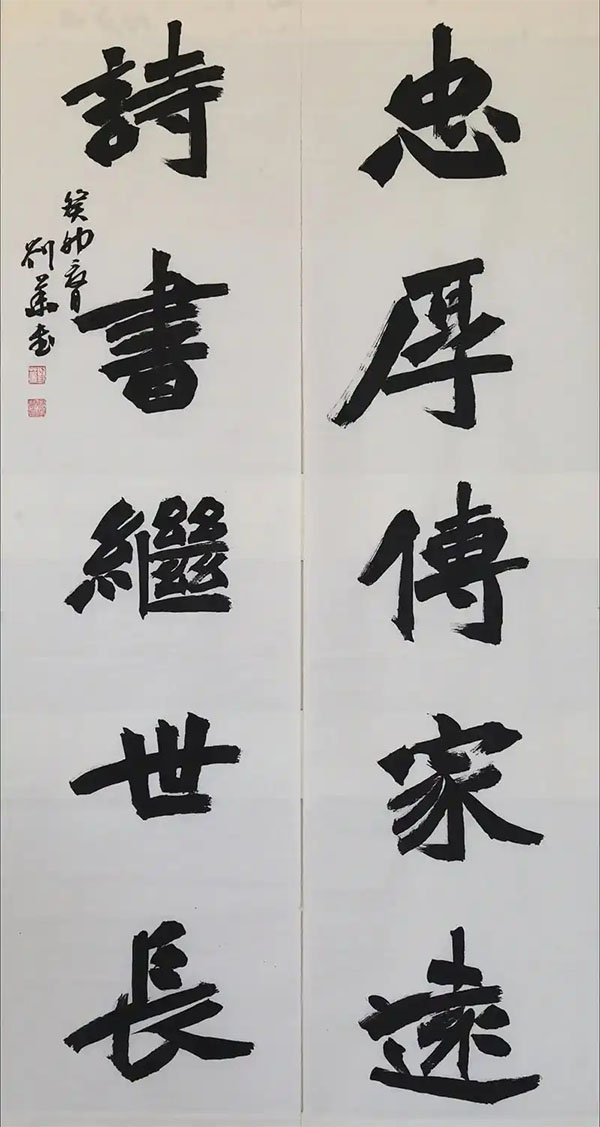 忠厚傳家遠
詩書繼世長
癸卯春月